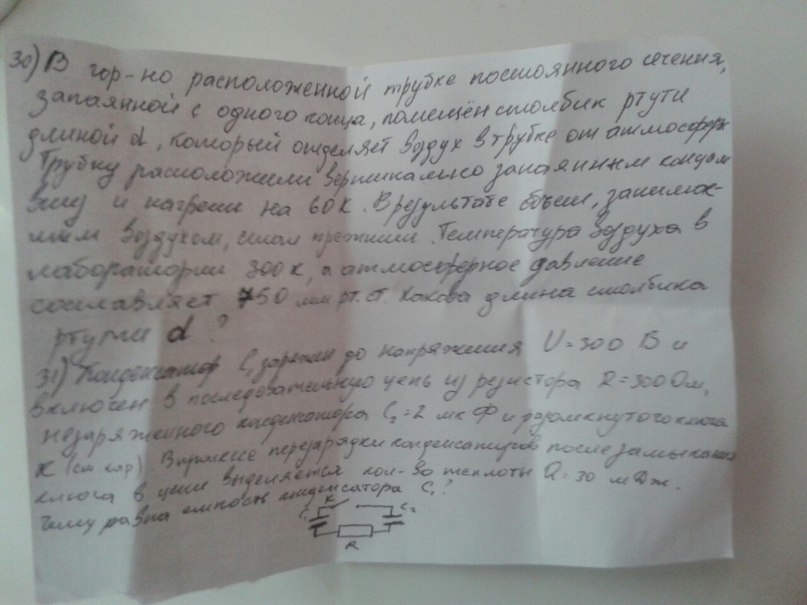 30) В гор-но расположенной трубке постоянного сечения,
запаянной с одного конца, помещён столбик ртути
длиной d, который отделяет воздух в трубке от атмосферы
Трубку расположили вертикально запаянным концом
вниз и нагрели на 60 К. В результате объем, занимае-
мым воздухом, стал прежним. Температура воздуха в
лаборатории 300 К, а атмосферное давление
составляет 750 мм рт. ст. Какова длина столбика
ртути d?
31) Конденсатор C₁ заряжен до напряжения U = 300 В и
включен в последовательную цепь из резистора R = 300 Ом,
незаряженного конденсатора C₂ = 2 мкФ и разомкнутого ключа
К (см. кар). В процессе перезарядки конденсаторов после замыкания
ключа в цепи выделяется кол-во теплоты Q = 30 мДж.
Чему равна емкость конденсатора C₁?
C₁ K C₂
R